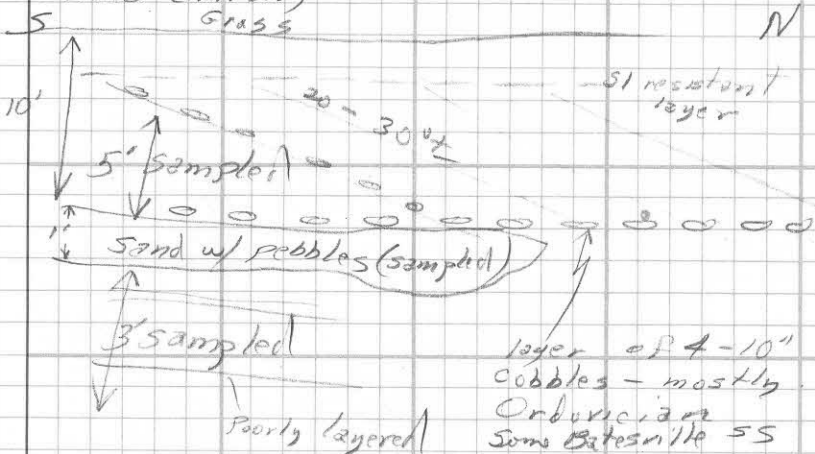 S Grass N
10'
Sl resistant
layer
20 - 30%
5' sampled
1'
Sand w/ pebbles (sampled)
3' sampled
Poorly layered
layer of 4-10"
Cobbles - mostly
Ordovician
Some Batesville SS